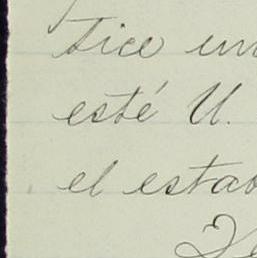 tice un
esté U.
el estad